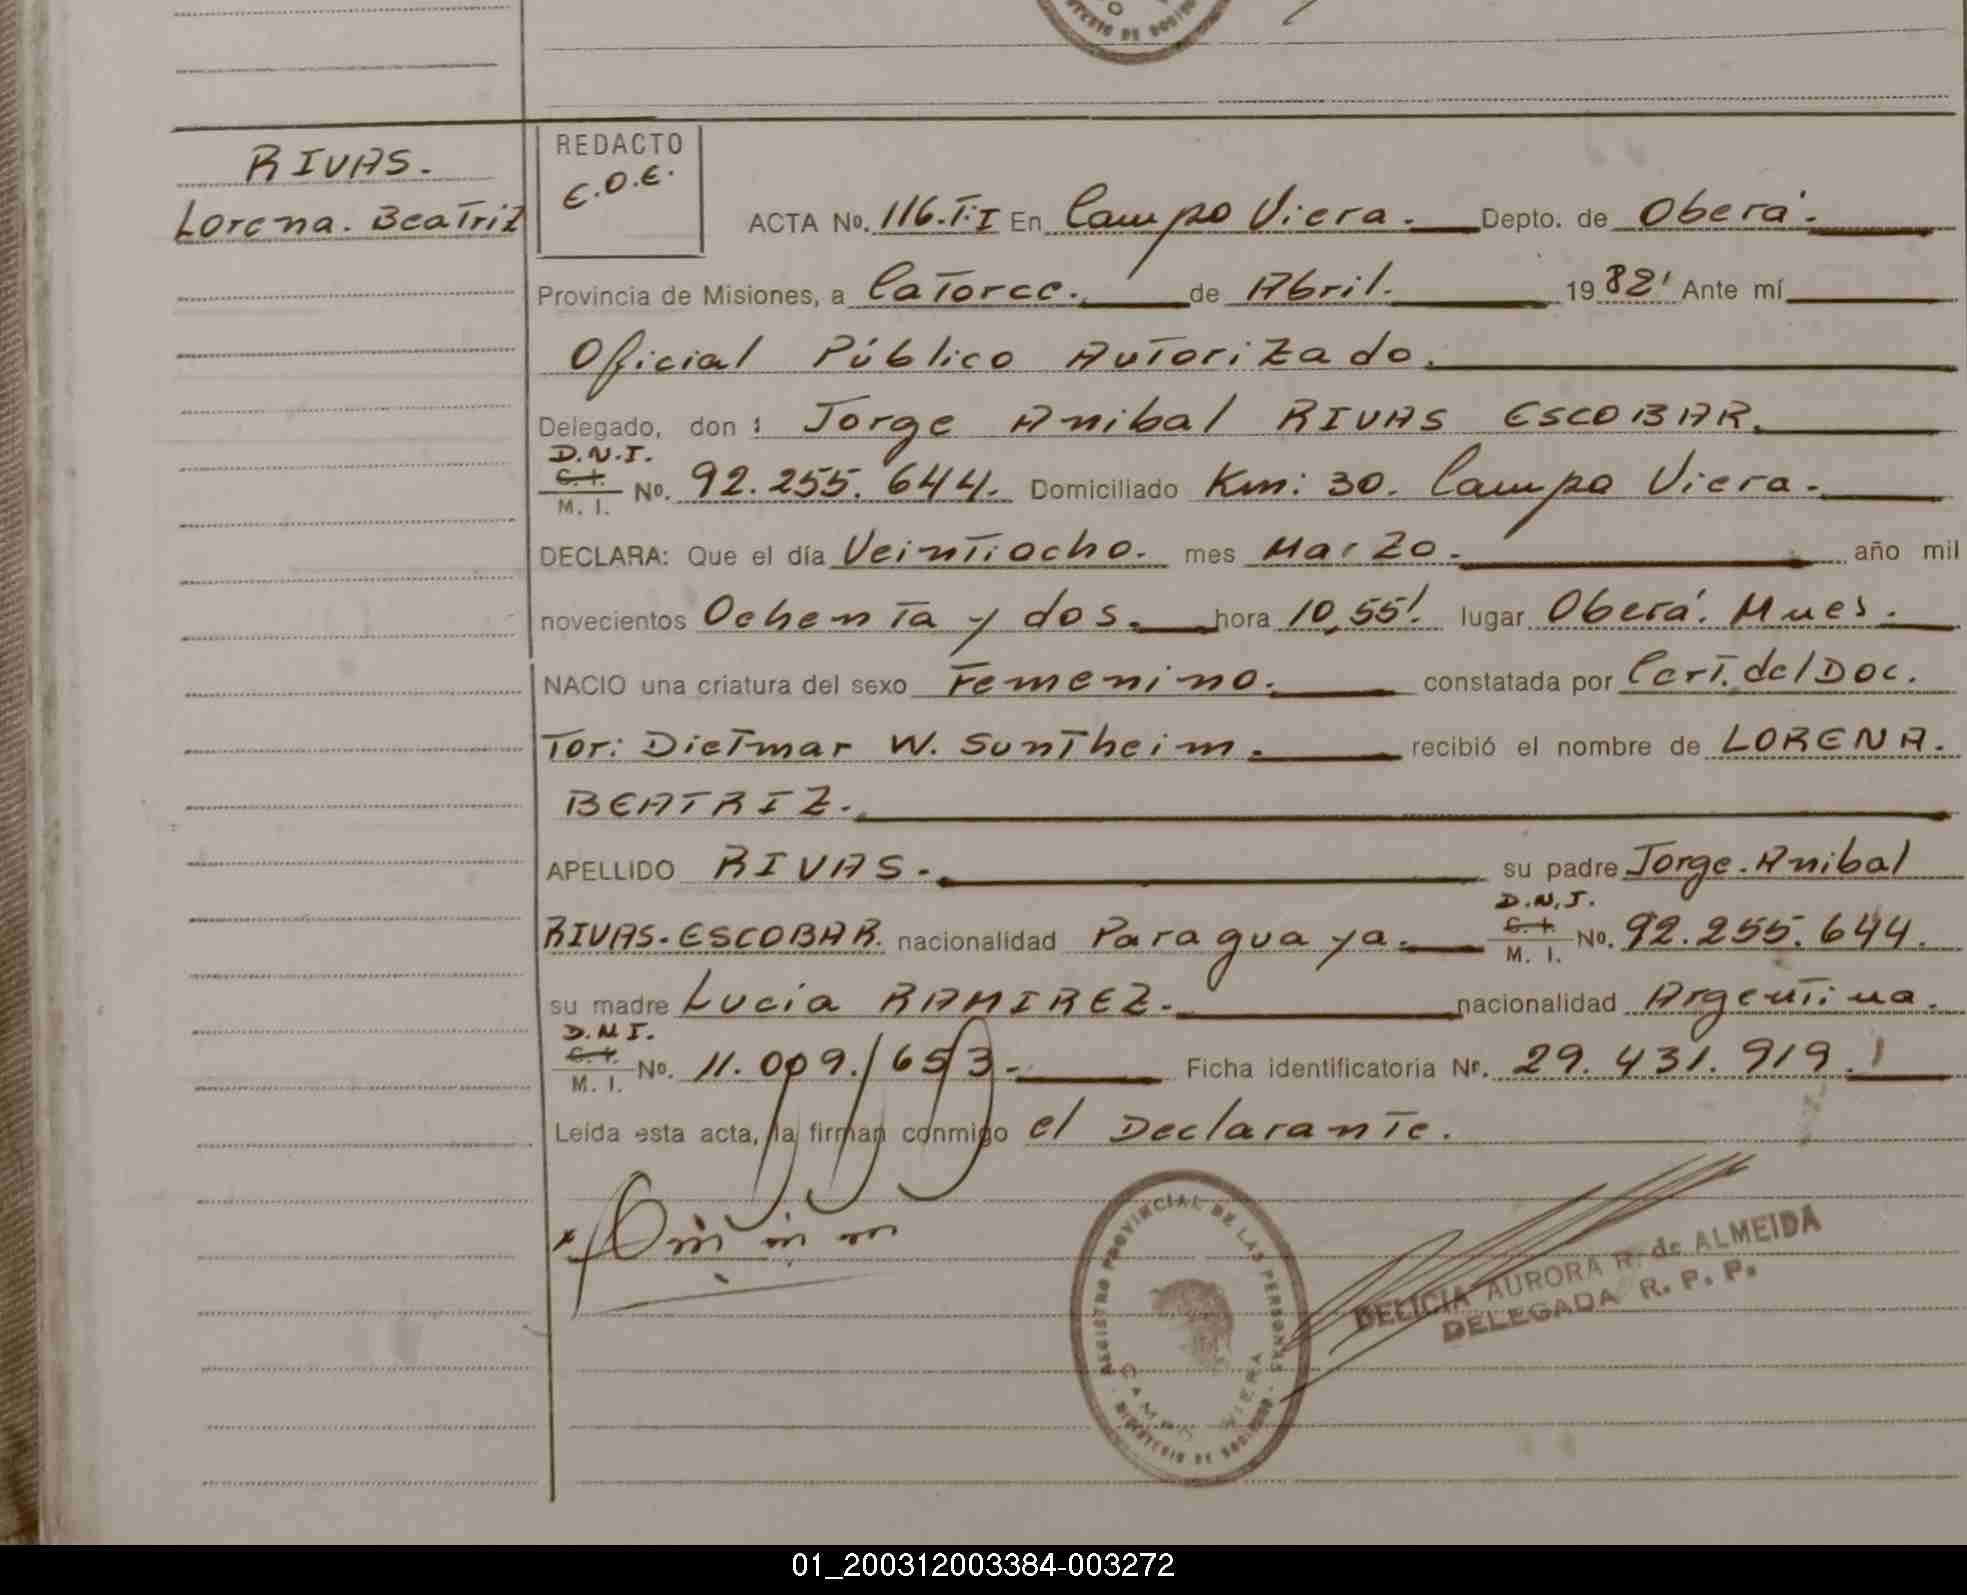 RIVAS.
Lorena. Beatriz
REDACTO
E.O.E.
ACTA No. 116.T:I En Campo Viera. Depto. de Oberá.
Provincia de Misiones, a Catorce. de Abril. 1982' Ante mí
Oficial Público Autorizado.
Delegado, don : Jorge Anibal RIVAS ESCOBAR.
D.N.I.
C. I.
M. I. No. 92.255.644. Domiciliado Km: 30. Campo Viera.
DECLARA: Que el día Veintiocho. mes Marzo. año mil
novecientos Ochenta y dos. hora 10,55! lugar Oberá. Mnes.
NACIO una criatura del sexo Femenino. constatada por Cert. del Doc.
Tor: Dietmar W. Suntheim. recibió el nombre de LORENA.
BEATRIZ.
APELLIDO RIVAS. su padre Jorge. Anibal
RIVAS-ESCOBAR. nacionalidad Paraguaya. D.N.I. C. I. M. I. No. 92.255.644.
su madre Lucia RAMIREZ. nacionalidad Argentina.
D.N.I.
C. I.
M. I. No. 11.009.653. Ficha identificatoria Nr. 29.431.919.
Leída esta acta, la firman conmigo el Declarante.
REGISTRO PROVINCIAL DE LAS PERSONAS
CAMPO VIERA
DELICIA AURORA R. de ALMEIDA
DELEGADA R. P. P.
01_200312003384-003272